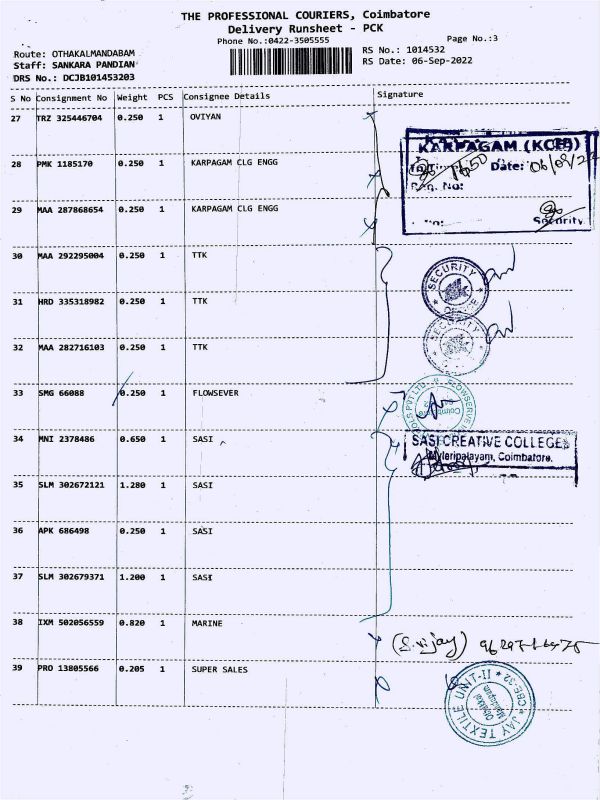 THE PROFESSIONAL COURIERS, Coimbatore
Delivery Runsheet - PCK
Phone No.:0422-3505555
Page No.:3
Route: OTHAKALMANDABAM
RS No.: 1014532
Staff: SANKARA PANDIAN
RS Date: 06-Sep-2022
DRS No.: DCJB101453203
S No Consignment No Weight PCS Consignee Details Signature
27 TRZ 325446704 0.250 1 OVIYAN
KARPAGAM (KCIB)
28 PMK 1185170 0.250 1 KARPAGAM CLG ENGG
1650 Date: 06/09/22
No:
29 MAA 287868654 0.250 1 KARPAGAM CLG ENGG
Security
30 MAA 292295004 0.250 1 TTK
SECURITY
31 HRD 335318982 0.250 1 TTK
SECURITY
32 MAA 282716103 0.250 1 TTK
33 SMG 66088 0.250 1 FLOWSEVER
FLOWSERVE
Coimbatore
34 MNI 2378486 0.650 1 SASI
SASI CREATIVE COLLEGE
Myleripalayam, Coimbatore.
35 SLM 302672121 1.280 1 SASI
36 APK 686498 0.250 1 SASI
37 SLM 302679371 1.200 1 SASI
38 IXM 502056559 0.820 1 MARINE
(S. vijay)
39 PRO 13805566 0.205 1 SUPER SALES
JAY TEXTILE UNIT-II
CBE-32